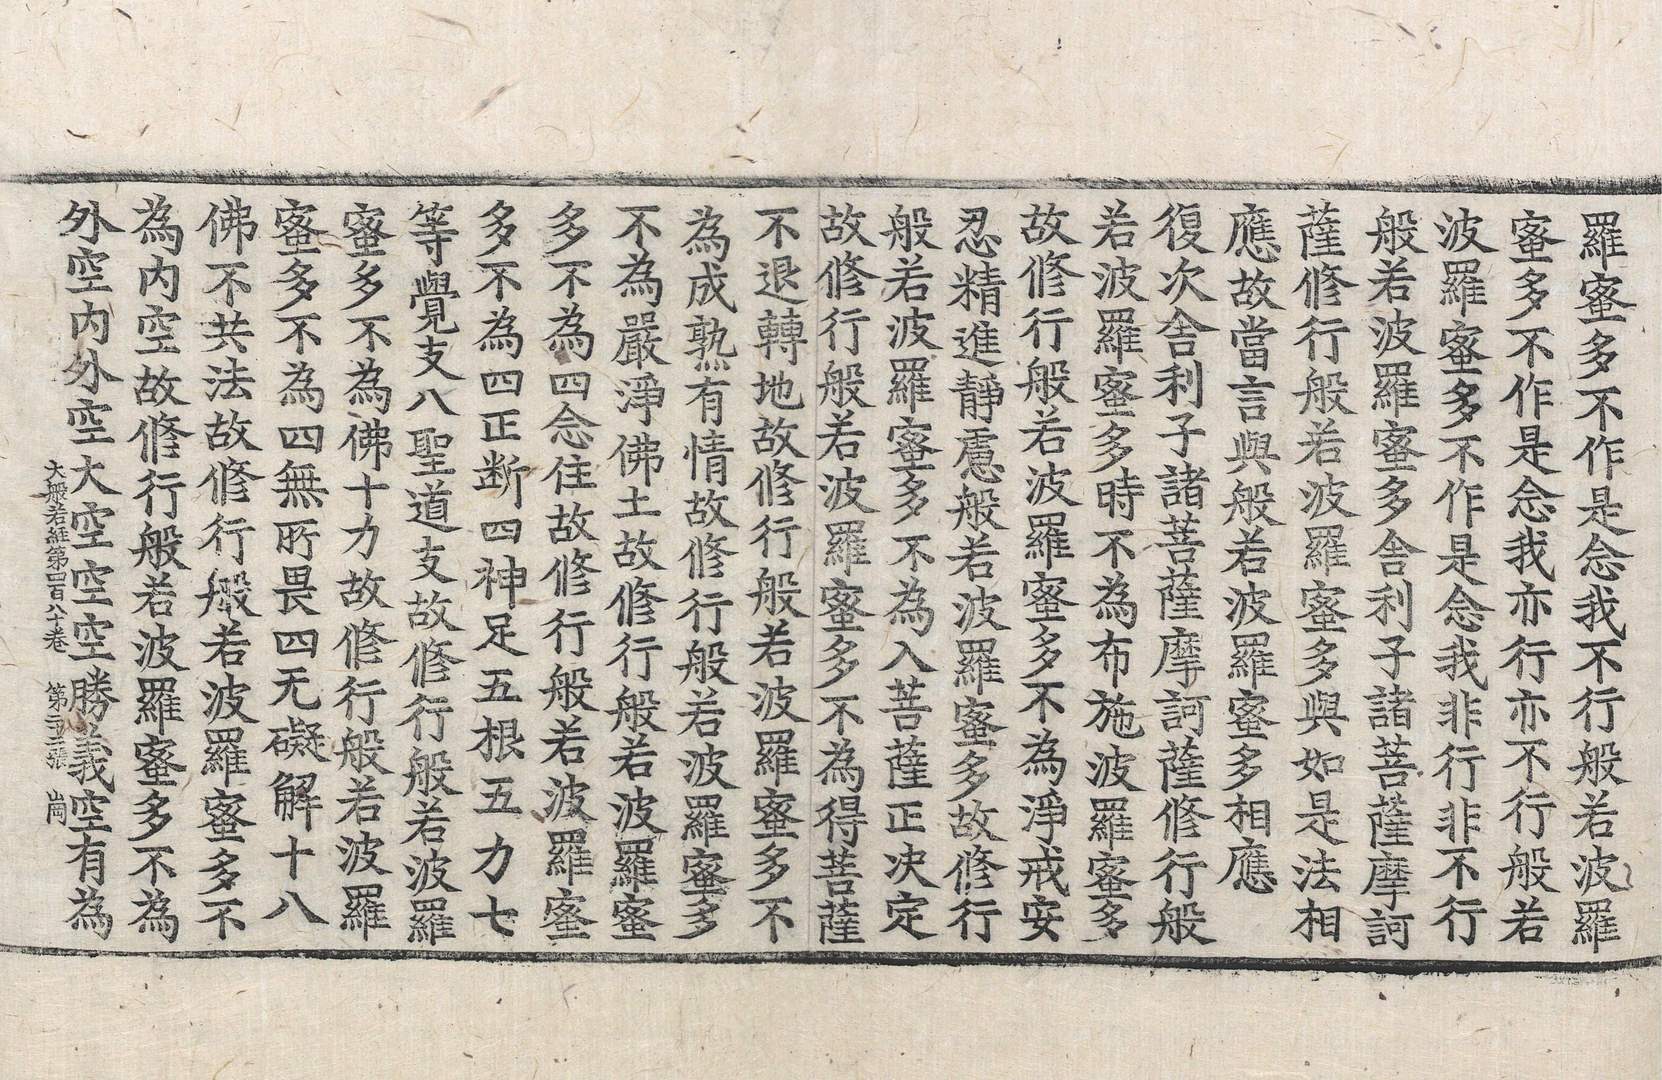 羅蜜多不作是念我不行般若波羅
蜜多不作是念我亦行亦不行般若
波羅蜜多不作是念我非行非不行
般若波羅蜜多舍利子諸菩薩摩訶
薩修行般若波羅蜜多與如是法相
應故當言與般若波羅蜜多相應
復次舍利子諸菩薩摩訶薩修行般
若波羅蜜多時不為布施波羅蜜多
故修行般若波羅蜜多不為淨戒安
忍精進靜慮般若波羅蜜多故修行
般若波羅蜜多不為入菩薩正决定
故修行般若波羅蜜多不為得菩薩
不退轉地故修行般若波羅蜜多不
為成熟有情故修行般若波羅蜜多
不為嚴淨佛土故修行般若波羅蜜
多不為四念住故修行般若波羅蜜
多不為四正断四神足五根五力七
等覺支八聖道支故修行般若波羅
蜜多不為佛十力故修行般若波羅
蜜多不為四無所畏四无礙解十八
佛不共法故修行般若波羅蜜多不
為内空故修行般若波羅蜜多不為
外空内外空大空空空勝義空有為
大般若經第四百八十卷 第二張 崗